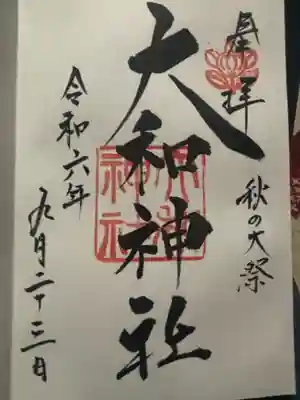 奉拝
秋の大祭
大和神社
令和六年
九月二十三日
大和神社